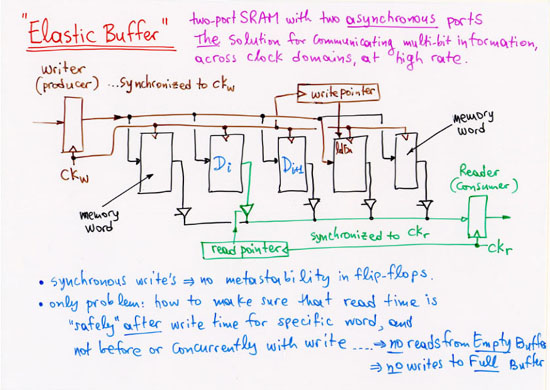 "Elastic Buffer"
two-port SRAM with two asynchronous ports
The solution for communicating multi-bit information,
across clock domains, at high rate.
Writer
(producer) ...synchronized to ckw
write pointer
memory
word
ldEn
Di
Di+1
ckw
memory
word
Reader
(consumer)
synchronized to ckr
read pointer
ckr
• synchronous write's ⇒ no metastability in flip-flops.
• only problem: how to make sure that read time is
"safely" after write time for specific word, and
not before or concurrently with write .... ⇒ no reads from Empty Buffer
⇒ no writes to Full Buffer